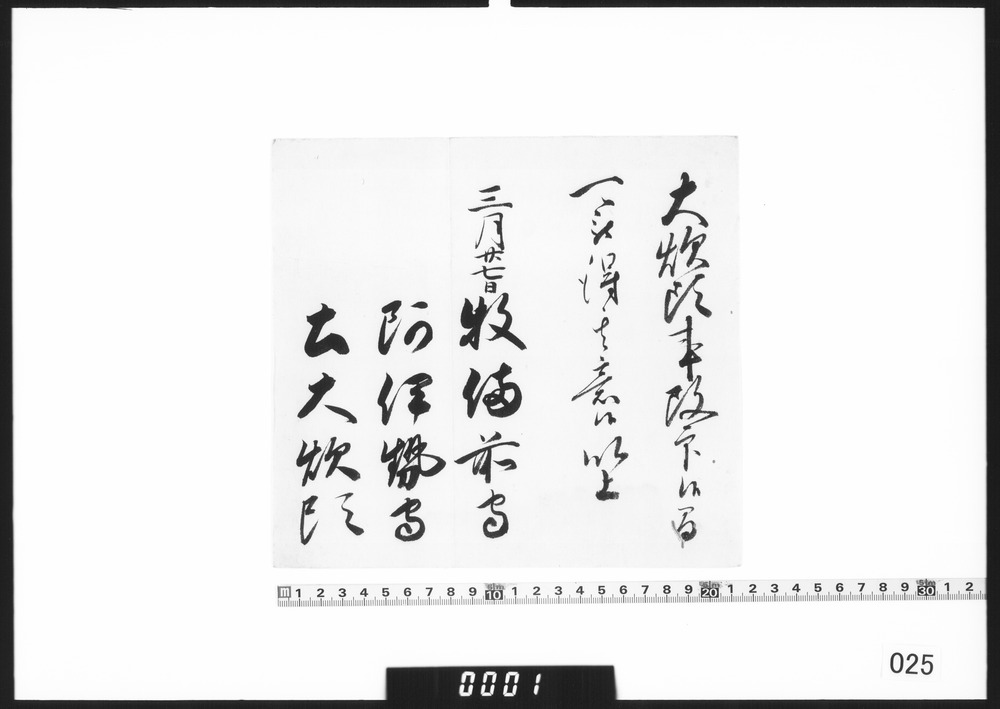 大炊頭事改不申候間
可被得其意候以上
三月廿七日
牧備前守
阿伊勢守
土大炊頭
m 1 2 3 4 5 6 7 8 9 10 1 2 3 4 5 6 7 8 9 20 1 2 3 4 5 6 7 8 9 30 1 2
025
0001